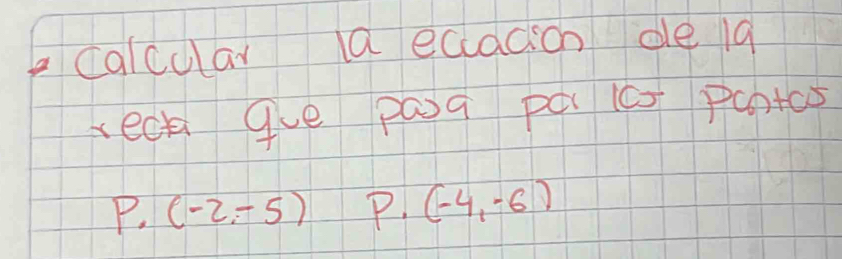 • Calcular la ecuación de la
recta que pasa por los puntos
P. (-2,-5) P. (-4,-6)